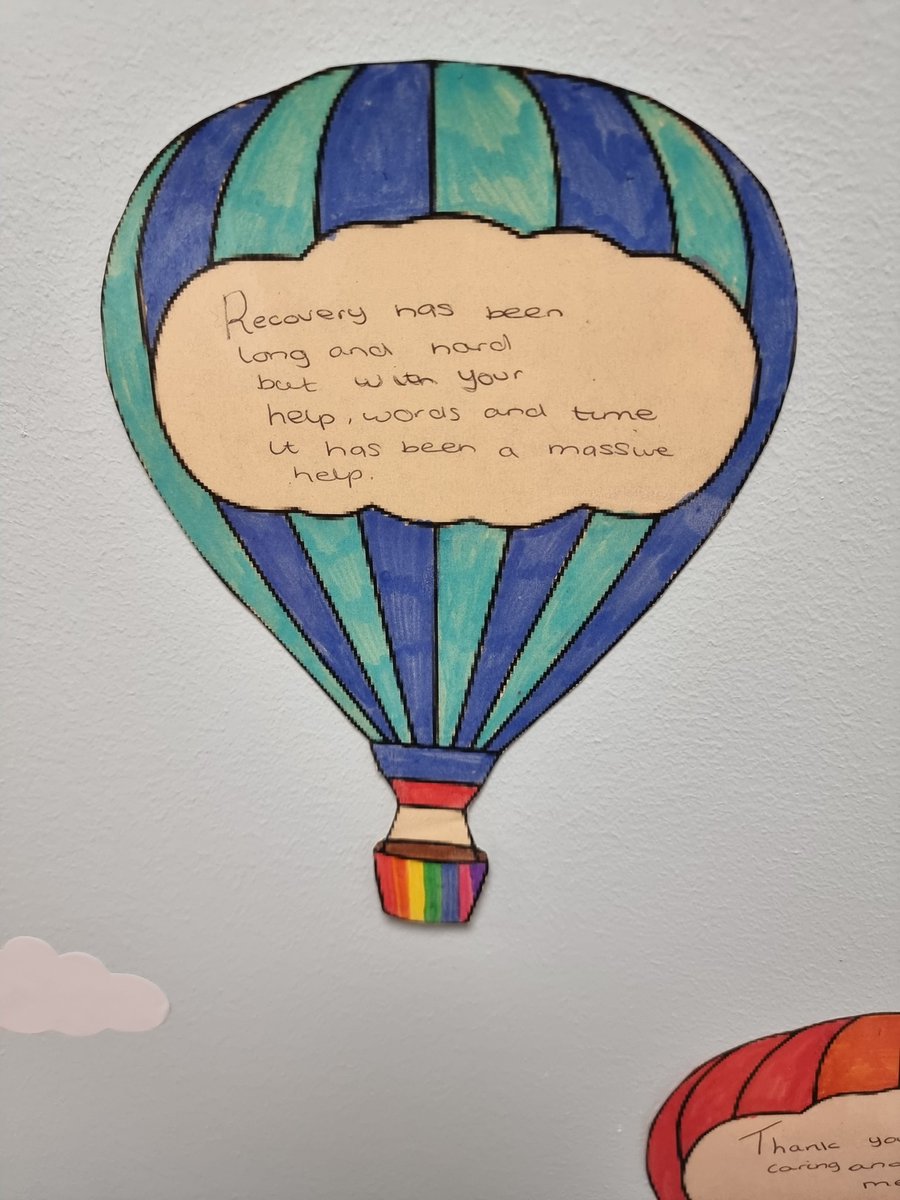 Recovery has been
long and hard
but with your
help, words and time
it has been a massive
help.
Thank
caring and